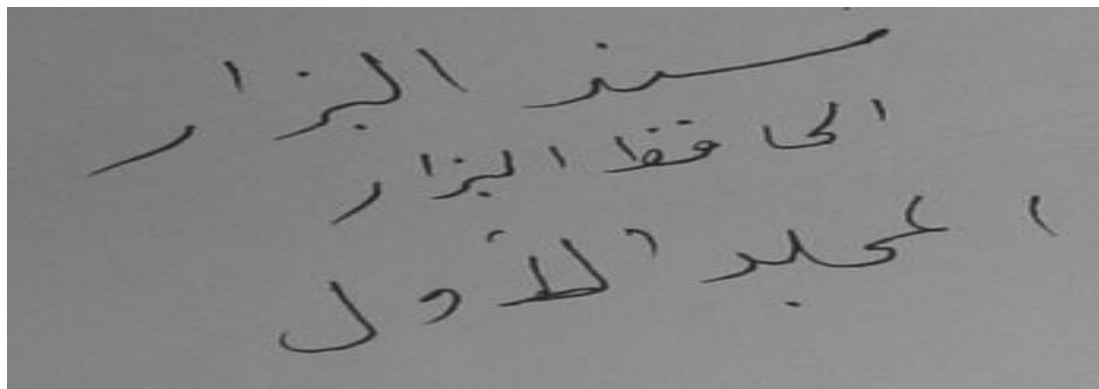 مسند البزار
الحافظ البزار
المجلد الأول